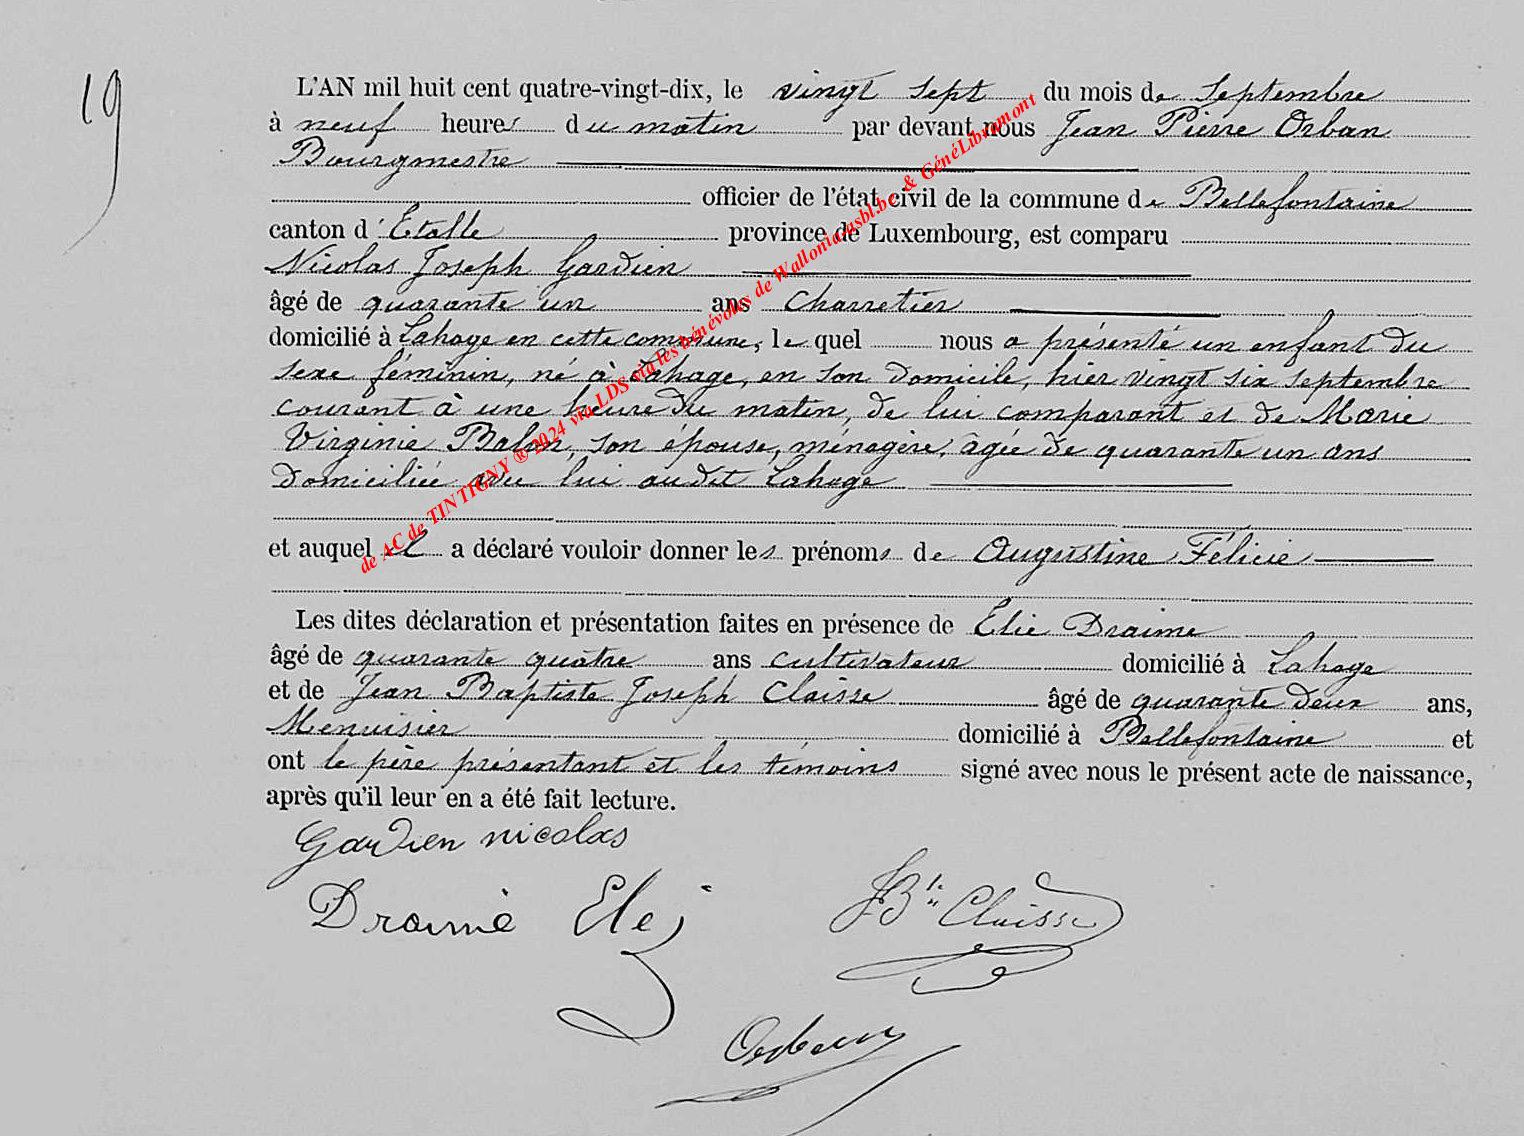 19
L'AN mil huit cent quatre-vingt-dix, le vingt sept du mois de Septembre
à neuf heures du matin par devant nous Jean Pierre Orban
Bourgmestre
officier de l'état civil de la commune de Bellefontaine
canton d'Etalle province de Luxembourg, est comparu
Nicolas Joseph Gardien
âgé de quarante un ans charretier
domicilié à Lahage en cette commune, le quel nous a présenté un enfant du
sexe féminin, né à Lahage, en son domicile, hier vingt six septembre
courant à une heure du matin, de lui comparant et de Marie
Virginie Balon, son épouse, ménagère, âgée de quarante un ans
domiciliée avec lui audit Lahage
et auquel il a déclaré vouloir donner les prénoms de Augustine Félicie
Les dites déclaration et présentation faites en présence de Elie Draime
âgé de quarante quatre ans cultivateur domicilié à Lahage
et de Jean Baptiste Joseph Claisse âgé de quarante deux ans,
Menuisier domicilié à Bellefontaine et
ont le père présentant et les témoins signé avec nous le présent acte de naissance,
après qu'il leur en a été fait lecture.
Gardien nicolas
Draime Elei
JBte Claisse
Orban
de AC de TINTIGNY ® 2024 via LDS via les bénévoles de Wallonia.asbl.be & GénéLibramont